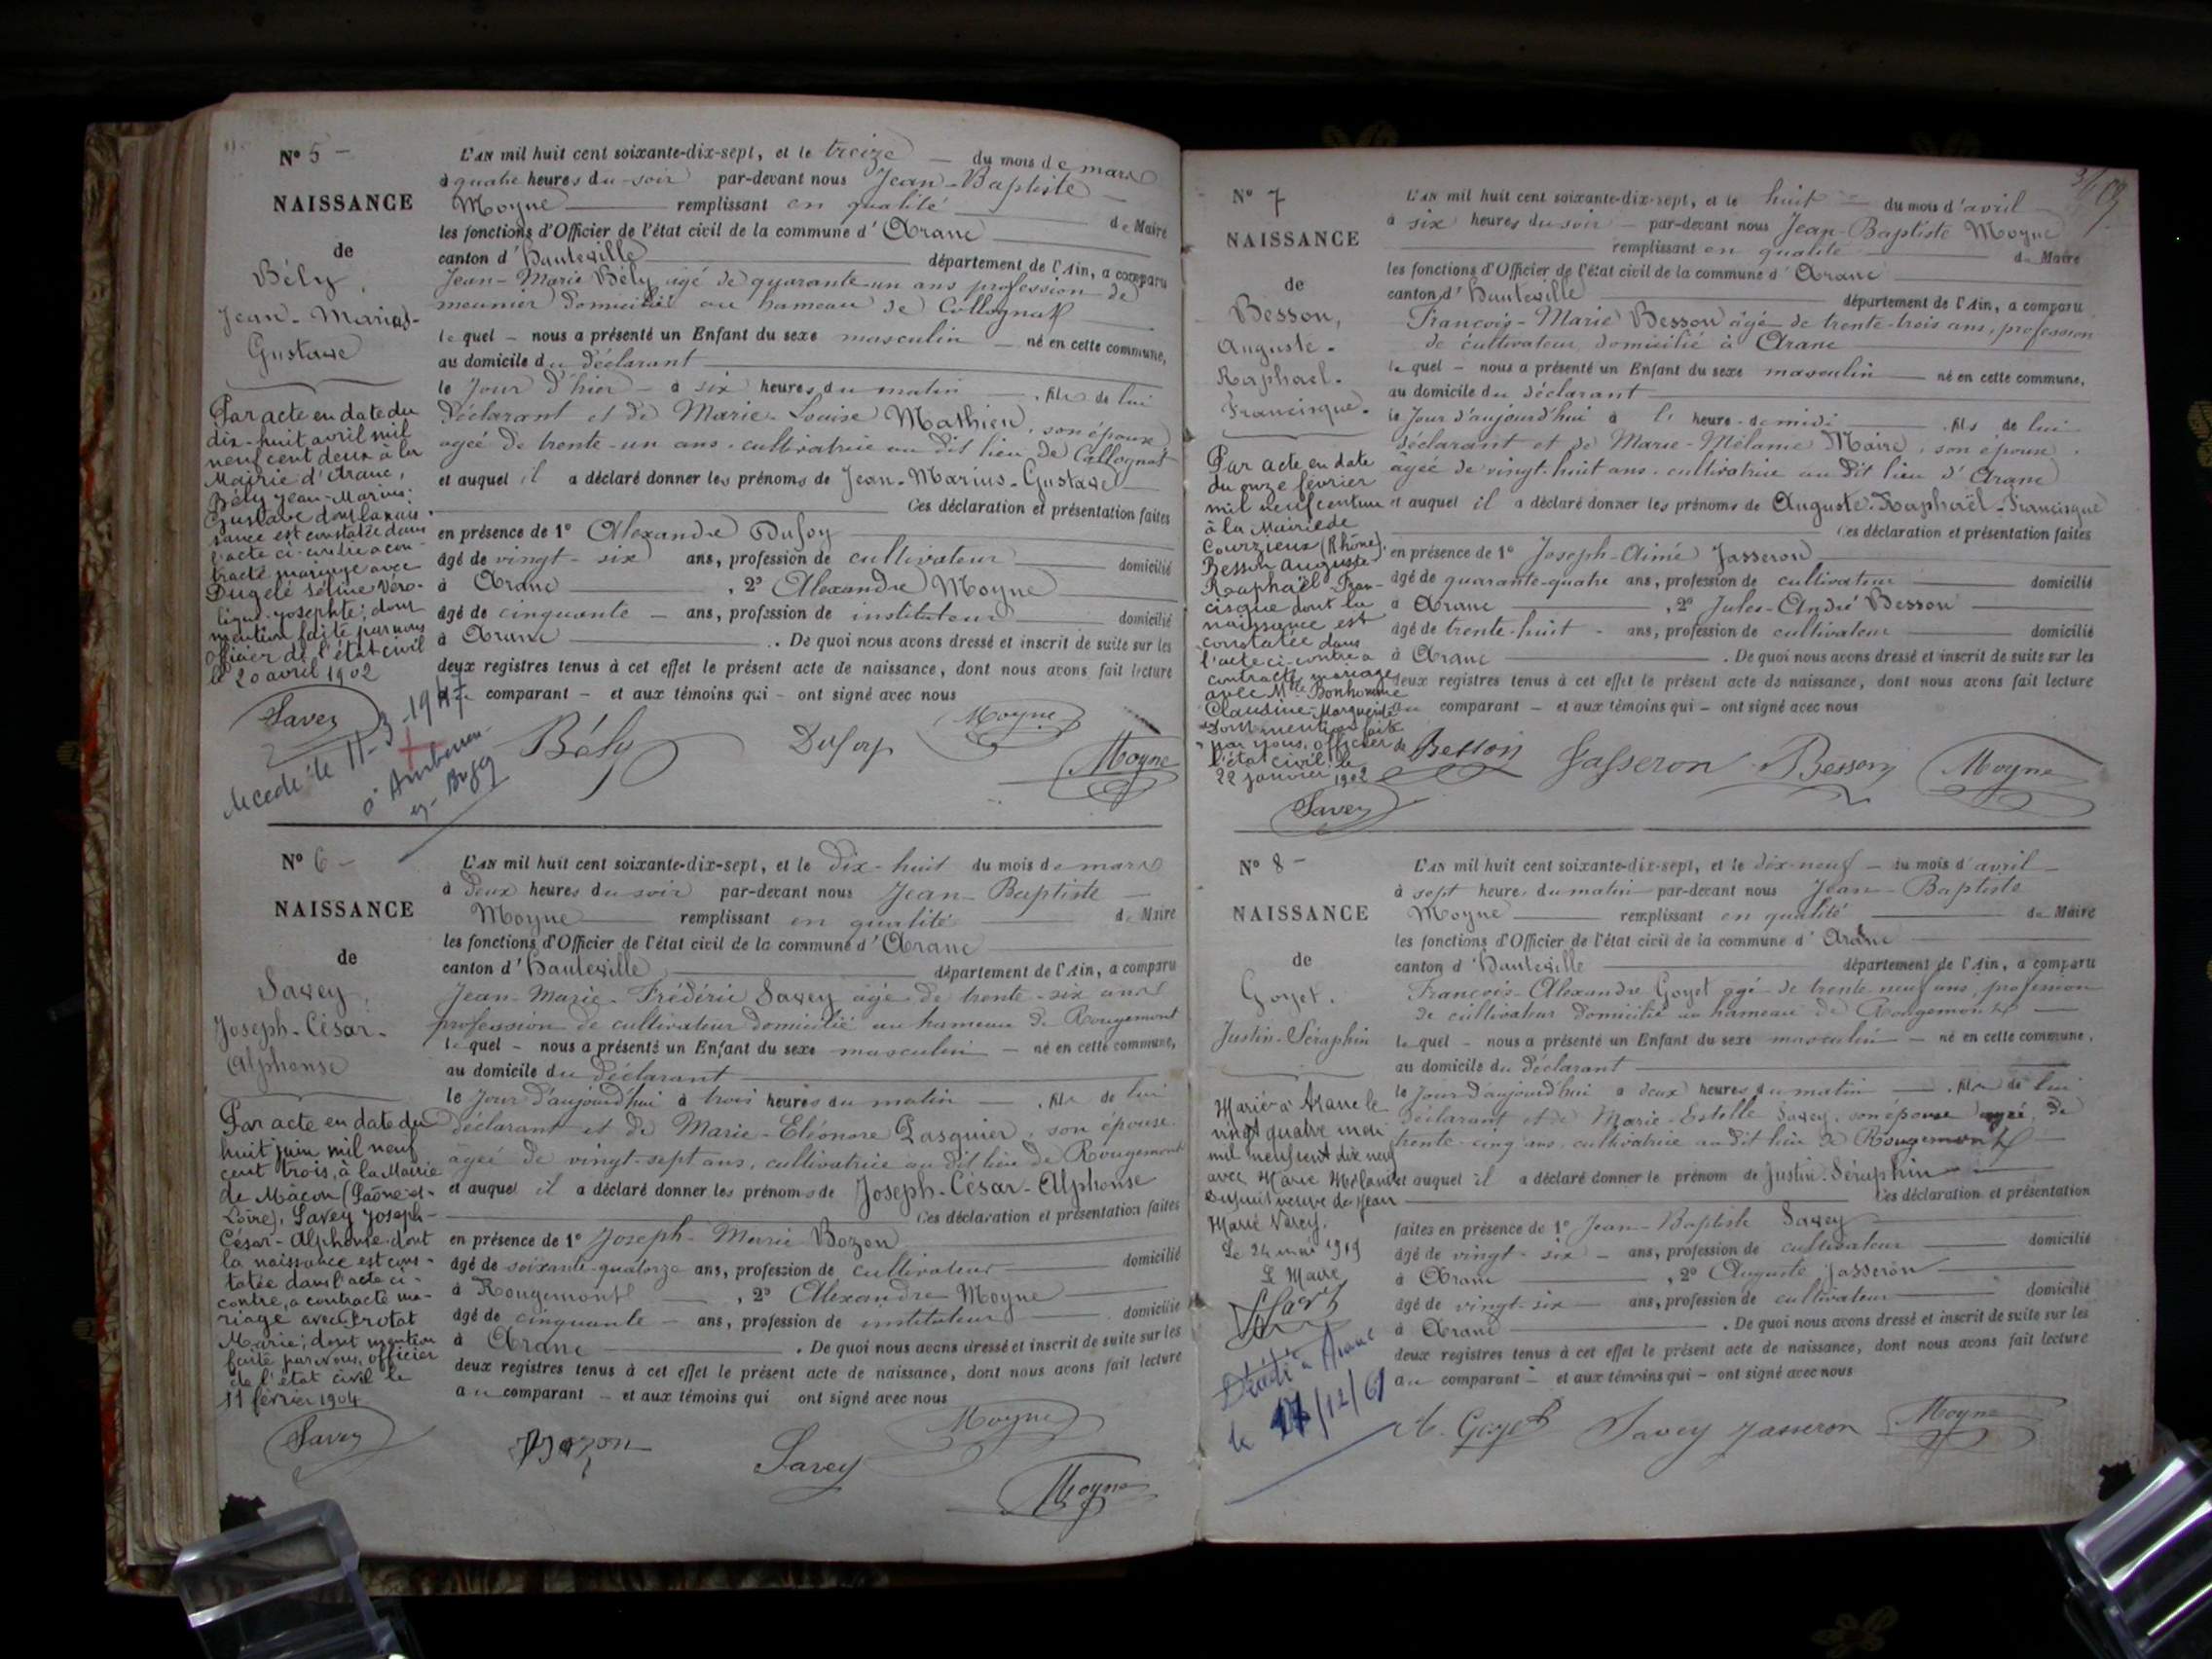 N° 5 -
NAISSANCE
de
Bély,
Jean-Marius-
Gustave
Par acte en date du
dix-huit avril mil
neuf cent deux à la
Mairie d'Aranc,
Bély Jean-Marius-
Gustave dont la nais-
sance est constatée dans
l'acte ci-contre a con-
tracté mariage avec
Dugelé Véro-
nique-Josephte; dont
mention faite par nous
officier de l'état civil
le 20 avril 1902
Savey
décédé le 11-3-1947
à Ambérieu
en-Bugey
L'AN mil huit cent soixante-dix-sept, et le treize — du mois de mars
à quatre heures du soir par-devant nous Jean-Baptiste —
Moyne — remplissant en qualité — de Maire
les fonctions d'Officier de l'état civil de la commune d'Aranc
canton d'Hauteville — département de l'Ain, a comparu
Jean-Marie Bély âgé de quarante-un ans profession de
meunier domicilié au hameau de Collognat
lequel - nous a présenté un Enfant du sexe masculin — né en cette commune,
au domicile du déclarant
le jour d'hier - à six heures du matin — , fils de lui
déclarant et de Marie-Louise Mathieu, son épouse
agée de trente-un ans, cultivatrice au dit lieu de Collognat
et auquel il a déclaré donner les prénoms de Jean-Marius-Gustave
Ces déclaration et présentation faites
en présence de 1° Alexandre Dufoy
âgé de vingt-six ans, profession de cultivateur — domicilié
à Aranc — , 2° Alexandre Moyne
âgé de cinquante - ans, profession de instituteur — domicilié
à Aranc — . De quoi nous avons dressé et inscrit de suite sur les
deux registres tenus à cet effet le présent acte de naissance, dont nous avons fait lecture
comparant - et aux témoins qui - ont signé avec nous
Bély Dufoy Moyne
Moyne
N° 6 -
NAISSANCE
de
Savey,
Joseph-César-
Alphonse
Par acte en date du
huit juin mil neuf
cent trois, à la Mairie
de Mâcon (Saône-et-
Loire), Savey Joseph-
César-Alphonse dont
la naissance est cons-
tatée dans l'acte ci-
contre, a contracté ma-
riage avec Protat
Marie; dont mention
faite par Nous, officier
de l'état civil le
11 février 1904
Savey
L'AN mil huit cent soixante-dix-sept, et le dix-huit du mois de mars
à deux heures du soir par-devant nous Jean-Baptiste —
Moyne — remplissant en qualité — de Maire
les fonctions d'Officier de l'état civil de la commune d'Aranc
canton d'Hauteville — département de l'Ain, a comparu
Jean-Marie-Frédéric Savey âgé de trente-six ans
profession de cultivateur domicilié au hameau de Rougemont
lequel - nous a présenté un Enfant du sexe masculin — né en cette commune,
au domicile du déclarant
le jour d'aujourd'hui à trois heures du matin — , fils de lui
déclarant et de Marie-Eléonore Pasquier, son épouse
agée de vingt-sept ans, cultivatrice au dit lieu de Rougemont
et auquel il a déclaré donner les prénoms de Joseph-César-Alphonse
Ces déclaration et présentation faites
en présence de 1° Joseph-Marie Bozon
âgé de soixante-quatorze ans, profession de cultivateur — domicilié
à Rougemont — , 2° Alexandre Moyne
âgé de cinquante - ans, profession de instituteur — domicilié
à Aranc — . De quoi nous avons dressé et inscrit de suite sur les
deux registres tenus à cet effet le présent acte de naissance, dont nous avons fait lecture
au comparant - et aux témoins qui ont signé avec nous
Bozon Savey Moyne
Moyne
N° 7
NAISSANCE
de
Besson,
Auguste-
Raphaël-
Francisque.
Par acte en date
du onze février
mil neuf cent un
à la Mairie de
Courzieux (Rhône),
Besson Auguste
Raphaël-Fran-
cisque dont la
naissance est
constatée dans
l'acte ci-contre a
contracté mariage
avec Mlle Bonhomme
Claudine-Marguerite
dont mention faite
par nous, officier de
l'état civil, le
22 janvier 1902
Savey
L'AN mil huit cent soixante-dix-sept, et le huit — du mois d'avril
à six heures du soir - par-devant nous Jean-Baptiste Moyne
remplissant en qualité — de Maire
les fonctions d'Officier de l'état civil de la commune d'Aranc
canton d'Hauteville — département de l'Ain, a comparu
François-Marie Besson âgé de trente-trois ans, profession
de cultivateur domicilié à Aranc
lequel - nous a présenté un Enfant du sexe masculin — né en cette commune,
au domicile du déclarant
le jour d'aujourd'hui à l' heure de midi , fils de lui
déclarant et de Marie-Mélanie Maire, son épouse,
âgée de vingt-huit ans, cultivatrice au dit lieu d'Aranc
et auquel il a déclaré donner les prénoms de Auguste-Raphaël-Francisque
Ces déclaration et présentation faites
en présence de 1° Joseph-Aimé Jasseron
âgé de quarante-quatre ans, profession de cultivateur — domicilié
à Aranc — , 2° Jules-André Besson
âgé de trente-huit - ans, profession de cultivateur — domicilié
à Aranc — . De quoi nous avons dressé et inscrit de suite sur les
deux registres tenus à cet effet le présent acte de naissance, dont nous avons fait lecture
au comparant - et aux témoins qui - ont signé avec nous
Besson Jasseron Besson Moyne
N° 8 -
NAISSANCE
de
Goyet,
Justin-Séraphin
Marié à Aranc le
vingt quatre mai
mil neuf cent dix neuf
avec Marie Mélanie
veuve de Jean
Marie Varey.
Le 24 mai 1919
Le Maire
Décédé à Aranc
le 17/12/61
L'AN mil huit cent soixante-dix-sept, et le dix-neuf — du mois d'avril —
à sept heure du matin par-devant nous Jean-Baptiste
Moyne — remplissant en qualité — de Maire
les fonctions d'Officier de l'état civil de la commune d'Aranc
canton d'Hauteville — département de l'Ain, a comparu
François-Alexandre Goyet âgé de trente neuf ans, profession
de cultivateur domicilié au hameau de Rougemont
lequel - nous a présenté un Enfant du sexe masculin — né en cette commune,
au domicile du déclarant
le jour d'aujourd'hui à deux heures du matin — , fils de lui
déclarant et de Marie-Estelle Savey, son épouse agée de
trente-cinq ans, cultivatrice au dit lieu de Rougemont
et auquel il a déclaré donner le prénom de Justin-Séraphin
Ces déclaration et présentation
faites en présence de 1° Jean-Baptiste Savey
âgé de vingt-six - ans, profession de cultivateur — domicilié
à Aranc — , 2° Auguste Jasseron
âgé de vingt-six ans, profession de cultivateur — domicilié
à Aranc — . De quoi nous avons dressé et inscrit de suite sur les
deux registres tenus à cet effet le présent acte de naissance, dont nous avons fait lecture
au comparant - et aux témoins qui - ont signé avec nous
A. Goyet Savey Jasseron Moyne